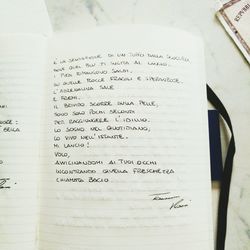 È LA SENSAZIONE DI UN TUFFO DALLA SCOGLIERA
DOVE QUEL BLU TI INCITA AL LANCIO.
I PIEDI RIMANGONO SALDI
SU QUELLE ROCCE FRAGILI E SPERANZOSE.
L'ADRENALINA SALE
E FREMI.
IL BRIVIDO SCORRE SULLA PELLE,
SONO SOLO POCHI SECONDI
PER RAGGIUNGERE L'IDILLIO.
LO SOGNO NEL QUOTIDIANO,
LO VIVO NELL'ISTANTE.
MI LANCIO!
VOLO,
AVVICINANDOMI AI TUOI OCCHI
INCONTRANDO QUELLA FRESCHEZZA
CHIAMATA BACIO
BELLA